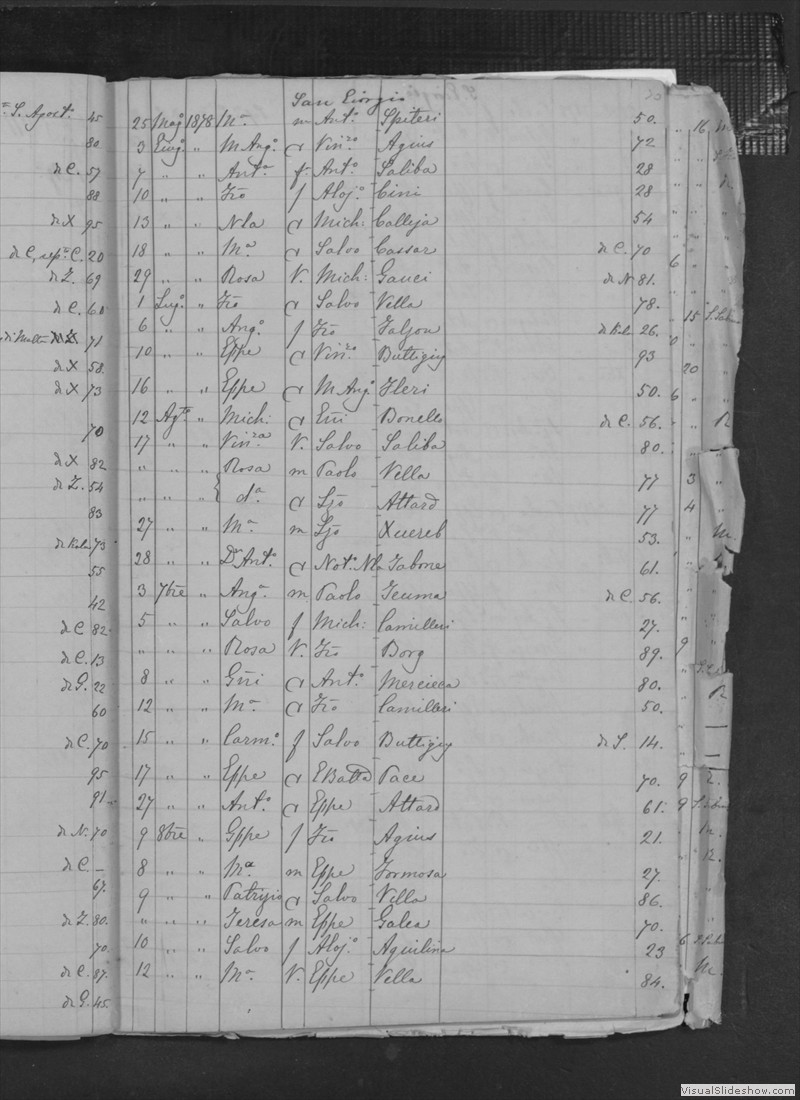 San Giorgio
S. Agost.º 45
80
di C. 57
88
di X 95
di C, sep. C. 20
di Z. 69
di C. 60
71
di X 58.
di X 73
70
di X 82
di Z. 54
83
73
55
42
di C 82.
di C. 13
di G. 22
60
di C. 70
95
91
di N. 70
di C. –
67.
di Z. 80.
70.
di C. 87.
di G. 45.
25 Mag 1878 Mª m Antº Spiteri 50.
3 Giugº „ M Angº a Vinzº Agius 72
7 „ „ Antº f. Antº Saliba 28
10 „ „ Frō f Alojº Cini 28
13 „ „ Nla a Mich: Calleja 54
18 „ „ Mª a Salvo Cassar di C. 70
29 „ „ Rosa V. Mich: Gauci di N 81.
1 Lugº „ Frō a Salvo Vella 78.
6 „ „ Angº f Frō Falzon 26.
10 „ „ Gppe a Vinzº Buttigieg 93
16 „ „ Gppe a M Angº Fleri 50.
12 Agto „ Mich: a Bonello di C. 56.
17 „ „ Vinza V. Salvo Saliba 80.
„ „ „ Rosa m Paolo Vella 77
„ „ „ dª a Attard 77
27 „ „ Mª m Xuereb 53.
28 „ „ Dr Antº a Notº Nla Tabone 61.
3 7bre „ Angª m Paolo Teuma di C. 56.
5 „ „ Salvo f Mich: Camilleri 27.
„ „ „ Rosa V. Frō Borg 89.
8 „ „ a Antº Mercieca 80.
12 „ „ Mª a Frō Camilleri 50.
15 „ „ Carmº f Salvo Buttigieg di S. 14.
17 „ „ Gppe a GBatta Pace 70.
27 „ „ Antº a Gppe Attard 61.
9 8bre „ Gppe f Frō Agius 21.
8 „ „ Mª m Gppe Formosa 27.
9 „ „ Patrizio a Salvo Vella 86.
„ „ „ Teresa m Gppe Galea 70.
10 „ „ Salvo f Alojº Aquilina 23
12 „ „ Mª V. Gppe Vella 84.
VisualSlideshow.com